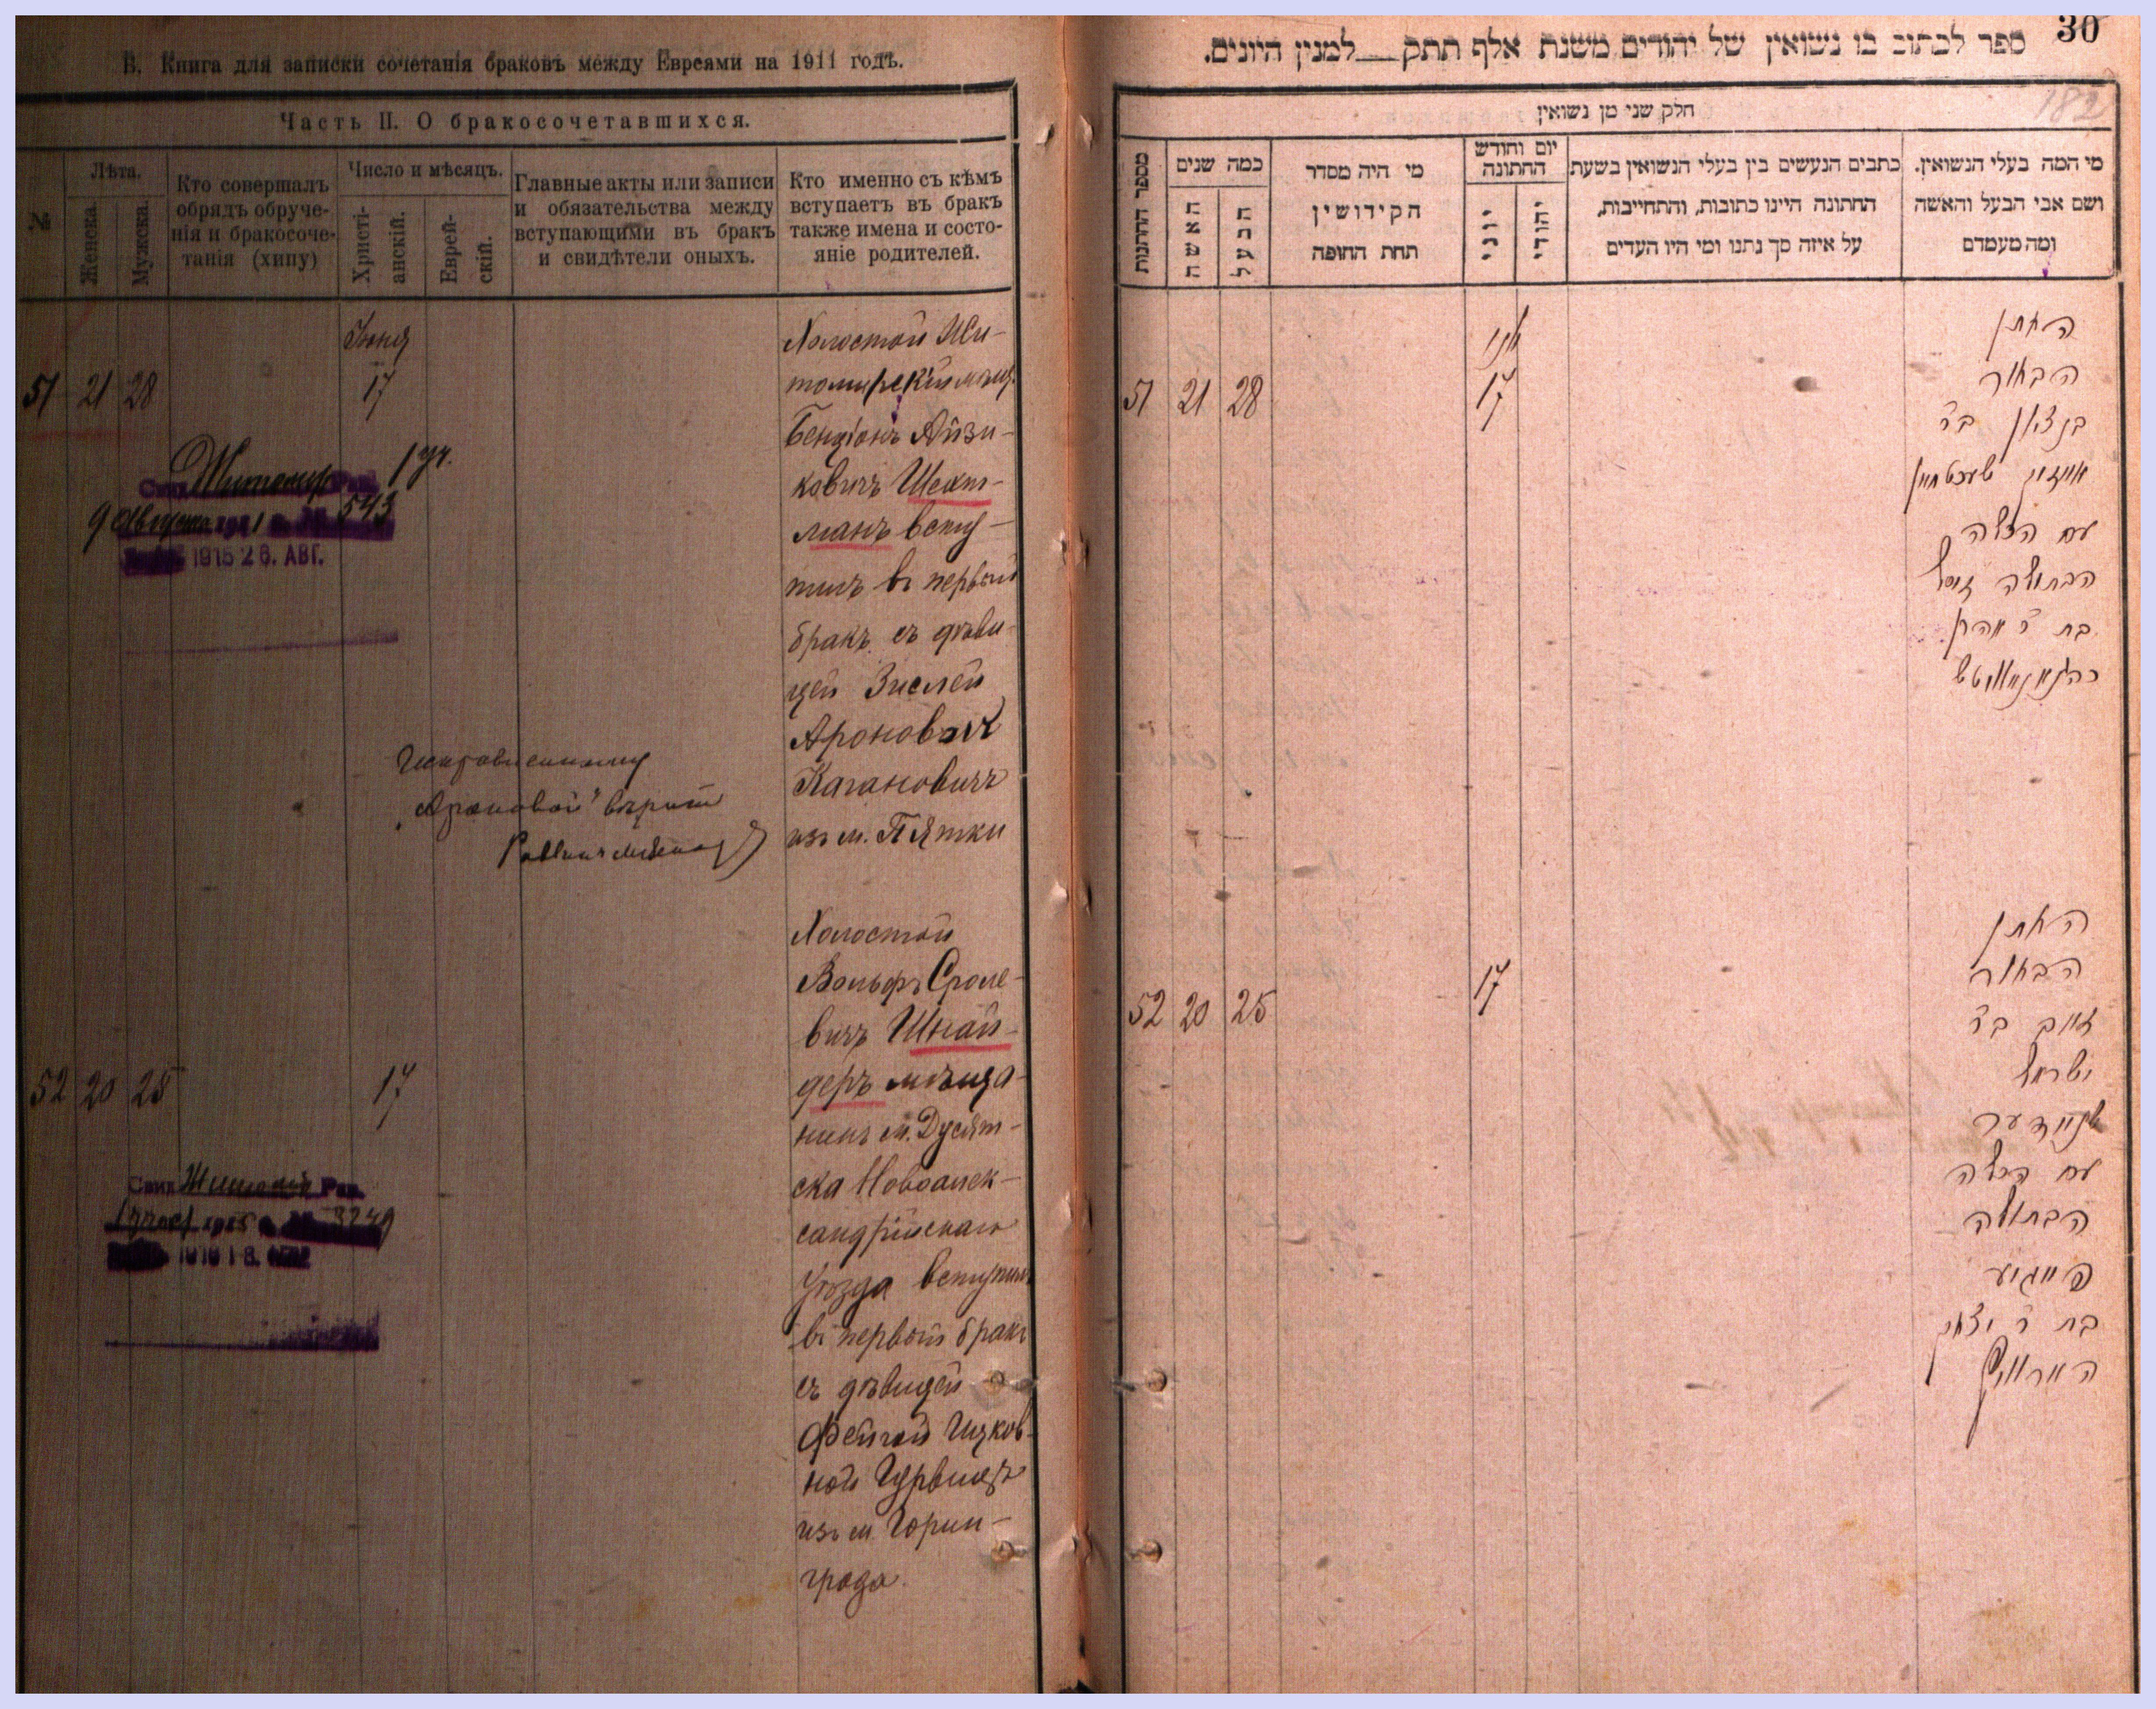 В. Книга для записки сочетанія браковъ между Евреями на 1911 годъ.
Часть II. О бракосочетавшихся.
№
Лѣта.
Женска.
Мужска.
Кто совершалъ
обрядъ обруче-
нія и бракосоче-
танія (хипу)
Число и мѣсяцъ.
Христі-
анскій.
Еврей-
скій.
Главные акты или записи
и обязательства между
вступающими въ бракъ
и свидѣтели оныхъ.
Кто именно съ кѣмъ
вступаетъ въ бракъ
также имена и состо-
яніе родителей.
51 21 28
Іюня
17
Холостой Жи-
томирскій мѣщ.
Бенціонъ Айзи-
ковичъ Шехт-
манъ всту-
пилъ въ первый
бракъ съ дѣви-
цей Зислей
Ароновой
Кагановичъ
изъ м. Пятки
Житомир 1 уч.
9 Августа 543
1915 26. АВГ.
Исправленному
"Ароновой" вѣрить
52 20 25
17
Холостой
Вольфъ Сроле-
вичъ Шнай-
деръ мѣща-
нинъ м. Дусят-
ска Новоалек-
сандрійскаго
уѣзда вступилъ
въ первый бракъ
съ дѣвицей
Фейгой Ицков-
ной Гурвицъ
изъ м. Горин-
града
30
ספר לכתוב בו נשואין של יהודים משנת אלף תתק למנין היונים.
182
חלק שני מן נשואין
מספר החתונות
כמה שנים
האשה
הבעל
מי היה מסדר
הקידושין
תחת החופה
יום וחודש
החתונה
יוני
יהודי
כתבים הנעשים בין בעלי הנשואין בשעת
החתונה היינו כתובות, והתחייבות,
על איזה סך נתנו ומי היו העדים
מי המה בעלי הנשואין.
ושם אבי הבעל והאשה
ומה מעמדם
51 21 28
יוני
17
החתן
הבחור
בן ציון בר
אייזיק שעכטמאן
עם הכלה
הבתולה זיסל
בת ר אהרן
כהגאנאוויטש
52 20 25
17
החתן
הבחור
זאב בר
ישראל
שניידער
עם הכלה
הבתולה
פייגע
בת ר יצחק
הורוויץ